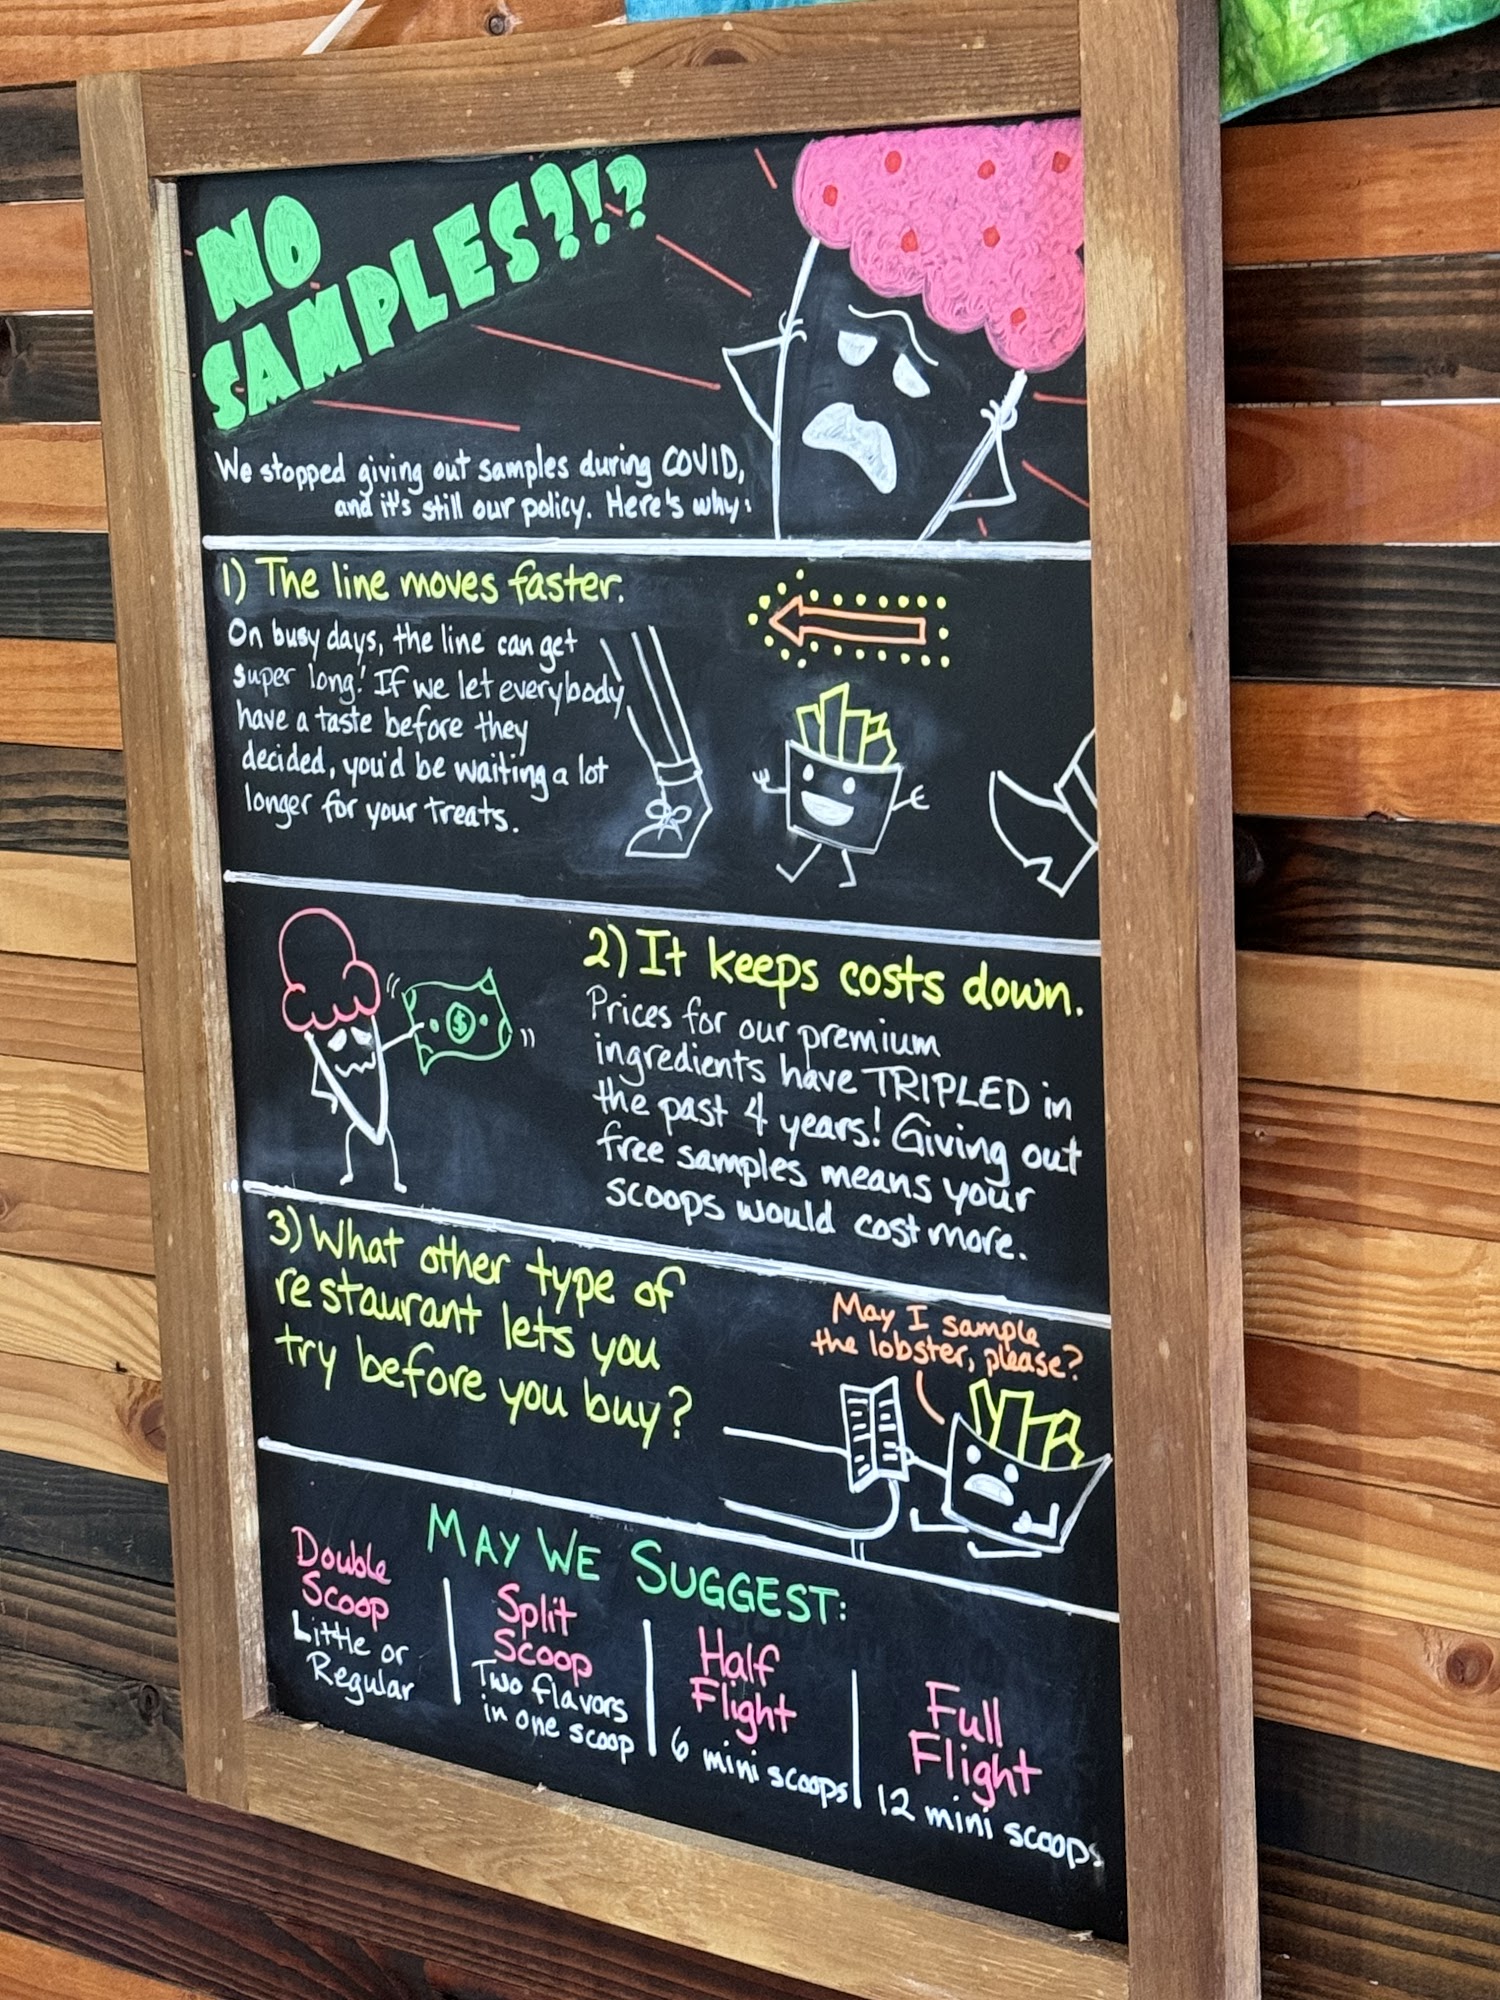 NO
SAMPLES?!?
We stopped giving out samples during COVID,
and it's still our policy. Here's why:
1) The line moves faster.
On busy days, the line can get
super long! If we let everybody
have a taste before they
decided, you'd be waiting a lot
longer for your treats.
$
2) It keeps costs down.
Prices for our premium
ingredients have TRIPLED in
the past 4 years! Giving out
free samples means your
scoops would cost more.
3) What other type of
restaurant lets you
try before you buy?
May I sample
the lobster, please?
MAY WE SUGGEST:
Double
Scoop
Little or
Regular
Split
Scoop
Two flavors
in one scoop
Half
Flight
6 mini scoops
Full
Flight
12 mini scoops